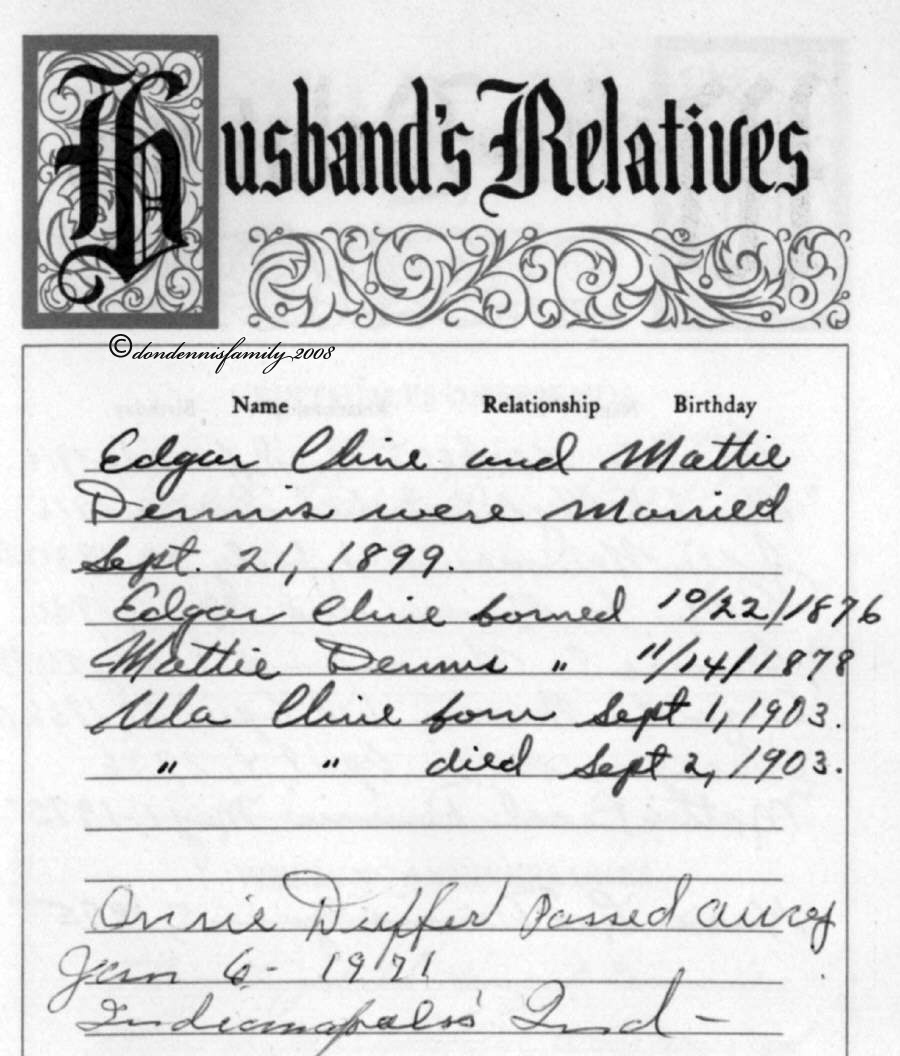 Husband's Relatives
©dondennisfamily 2008
Name Relationship Birthday
Edgar Cline and Mattie
Dennis were Married
Sept. 21, 1899.
Edgar Cline borned 10/22/1876
Mattie Dennis " 11/14/1878
Ula Cline born Sept 1, 1903.
" " died Sept 2, 1903.
Duffer Passed away
Jan 6 - 1971
Indianapolis Ind -